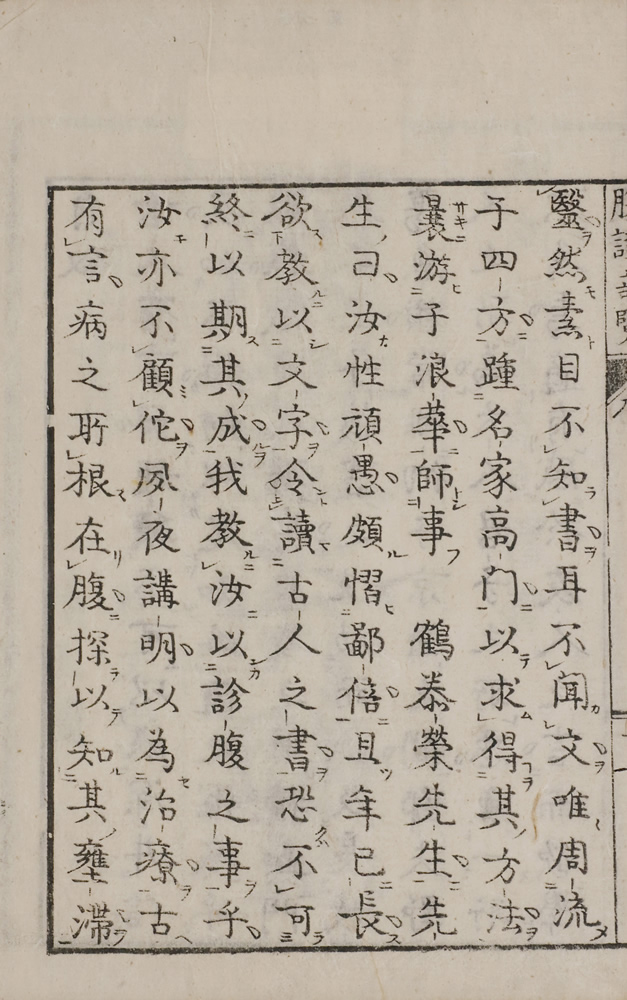 醫然素目不知書耳不聞文唯周流
子四方踵名家高門以求得其方法
曩游子浪華師事 鶴泰榮先生先
生曰汝性頑愚頗慴鄙倍且年已長
欲教以文字令讀古人之書恐不可
終以期其成我教汝以診腹之事乎
汝亦不顧佗夙夜講明以為治療古
有言病之所根在腹探以知其壅滞